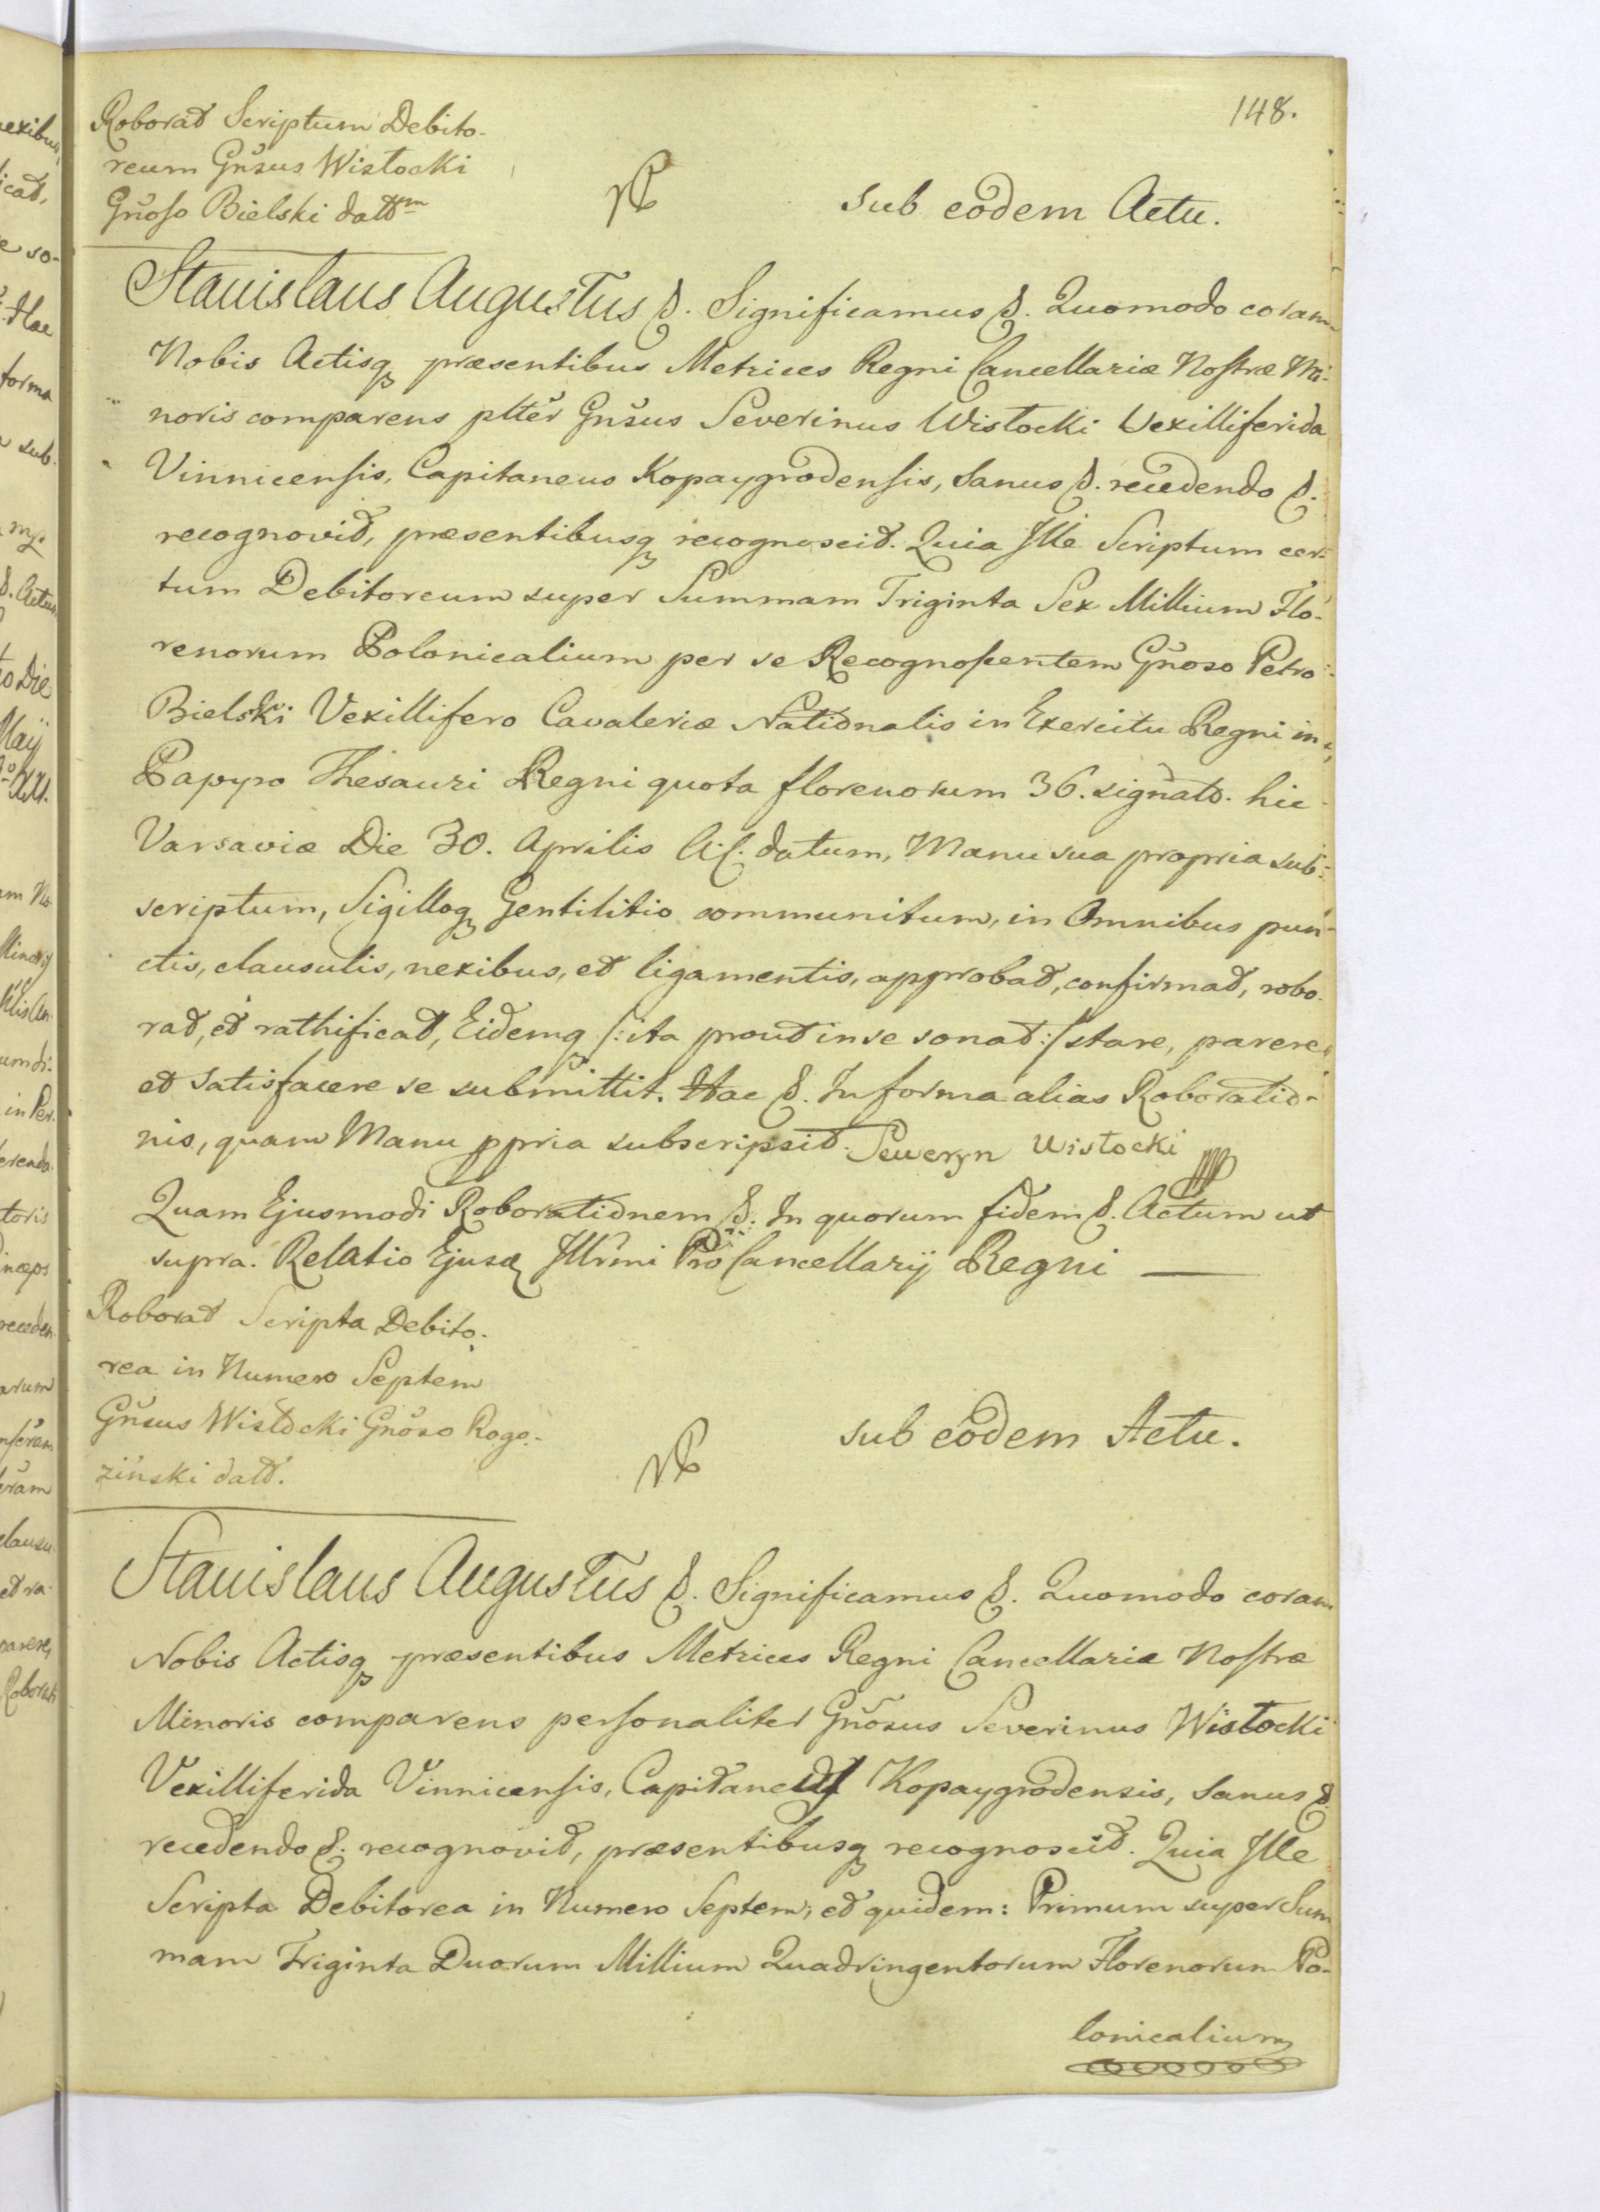 148.
Roborat Scriptum Debito-
reum Gnsus Wisłocki
Gnoso Bielski datt^m
sub eodem Actu.
Stanislaus Augustus &. Significamus &. Quomodo coram
Nobis Actisq præsentibus Metrices Regni Cancellariæ Nostræ Mi-
noris comparens plter Gnsus Severinus Wisłocki Vexilliferida
Vinnicensis, Capitaneus Kopaygrodensis, Sanus &. recedendo &.
recognovit, præsentibusq recognoscit. Quia Ille Scriptum cer-
tum Debitoreum super Summam Triginta Sex Millium Flo-
renorum Polonicalium per se Recognoscentem Gnoso Petro
Bielski Vexillifero Cavaleriæ Nationalis in Exercitu Regni in
Papyro Thesauri Regni quota florenorum 36. signato. hic
Varsaviæ Die 30. Aprilis A: C. datum, Manu sua propria sub-
scriptum, Sigilloq Gentilitio communitum, in Omnibus pun-
ctis, clausulis, nexibus, et ligamentis, approbat, confirmat, robo-
rat, et rathificat, Eidemq /: ita prout in se sonat :/ stare, parere
et satisfacere se submittit. Hac &. In forma alias Roboratio-
nis, quam Manu ppria subscripsit. Seweryn Wisłocki
Quam Ejusmodi Roborationem &. In quorum fidem &. Actum ut
supra. Relatio Ejusd Illrmi Pro Cancellarÿ Regni
Roborat Scripta Debito-
rea in Numero Septem
Gnsus Wisłocki Gnoso Rogo-
ziński datt.
sub eodem Actu.
Stanislaus Augustus &. Significamus &. Quomodo coram
Nobis Actisq præsentibus Metrices Regni Cancellariæ Nostræ
Minoris comparens personaliter Gnosus Severinus Wisłocki
Vexilliferida Vinnicensis, Capitaneus Kopaygrodensis, Sanus &.
recedendo &. recognovit, præsentibusq recognoscit. Quia Ille
Scripta Debitorea in Numero Septem; et quidem: Primum super Sum
mam Triginta Duorum Millium Quadringentorum Florenorum Po-
lonicalium